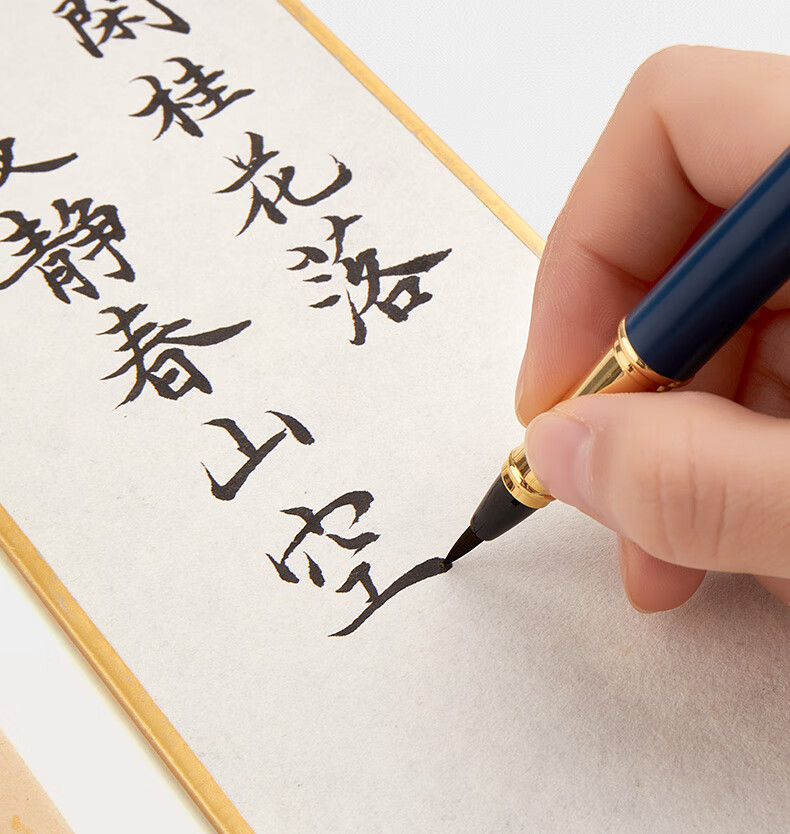 閑桂花落
靜春山空